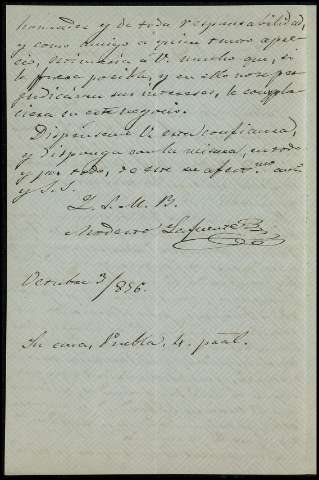 honradez y de toda responsavilidad,
y como amigo á quien tengo apre-
cio, estimaria á V. mucho que, si
le fuese posible, y en ello no se per-
judicaran sus intereses, le compla-
ciera en este negocio.
Dispénseme V. esta confianza,
y disponga con la misma, en todo
y por todo, de este su afectmo. am.
y S. S.
Q. S. M. B.
Modesto Lafuente
Octubre 3/856.
Su casa, Puebla, 4. pral.